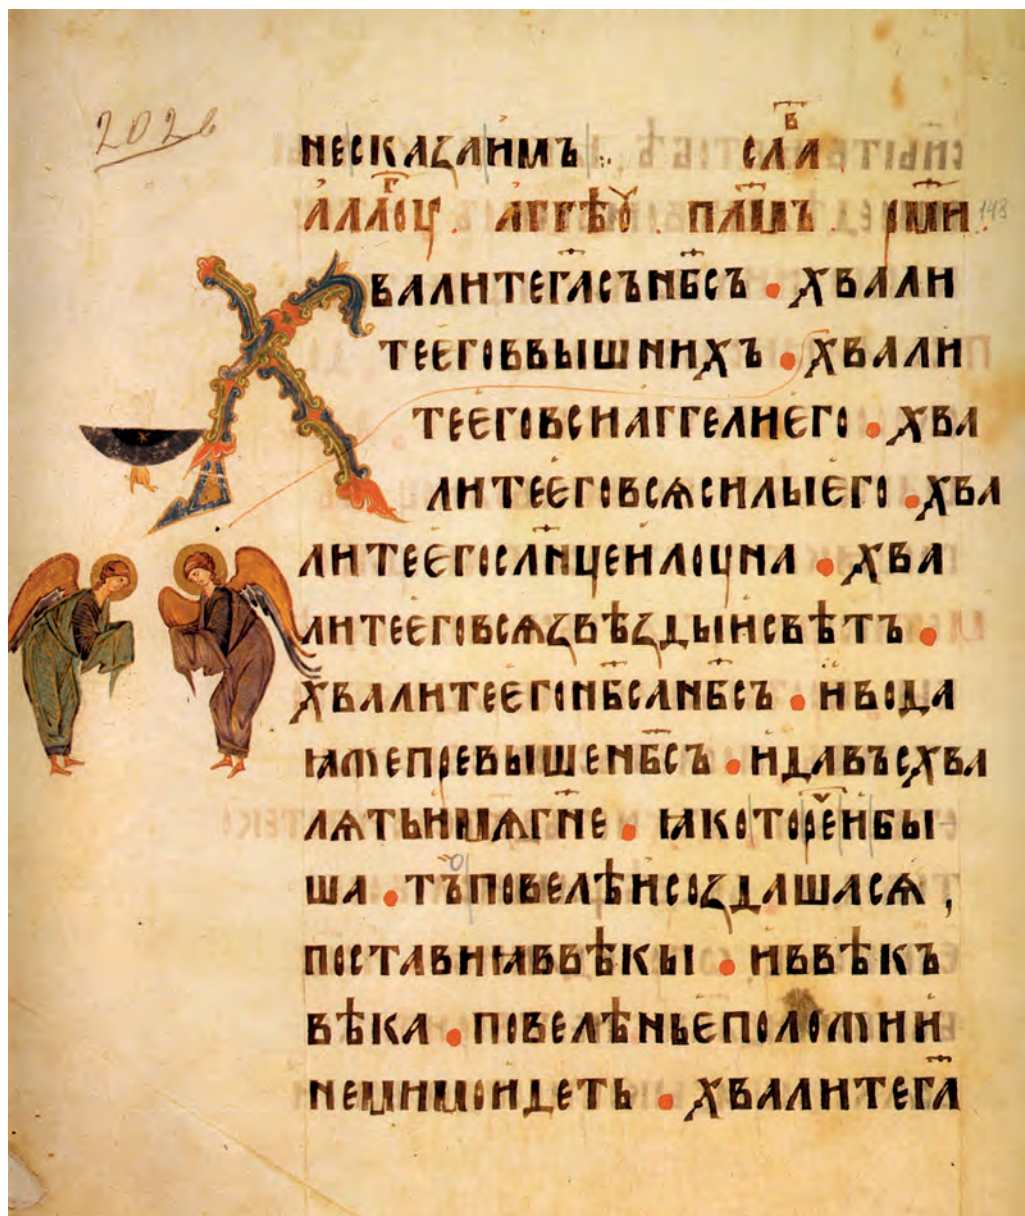 202в
нескаꙁаимъ : сла в҃
аллоц г҃ . аггѣѹ . п҃лмъ . рм҃и . 148
Хвалитег҃асън҃бсъ • хвали
тееговвышнихъ • хвали
теегоВсиаггелиего • хва
литеегоВсѧсилыего • хва
литеегосл҃нцеилоцна • хва
литеегоВсѧꙁвѣꙁдыисвѣтъ •
хвалитеегон҃бсан҃бсъ • ивода
ꙗжепревышен҃бсъ • идавъсхва
лѧтьимѧг҃не • ꙗкотореибы
ша • тъповелѣисоꙁдашасѧ ,
поставиꙗввѣкы • иввѣкъ
вѣка • повелѣньеположии
немимоидеть • хвалитег҃а